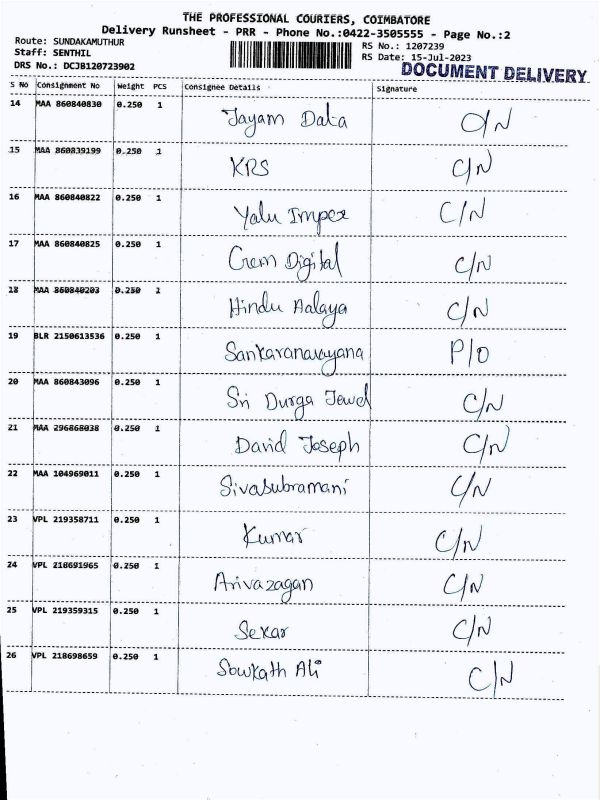 THE PROFESSIONAL COURIERS, COIMBATORE
Delivery Runsheet - PRR - Phone No.:0422-3505555 - Page No.:2
Route: SUNDAKAMUTHUR
Staff: SENTHIL
DRS No.: DCJB120723902
RS No.: 1207239
RS Date: 15-Jul-2023
DOCUMENT DELIVERY
S No Consignment No Weight PCS Consignee Details Signature
14 MAA 860840830 0.250 1 Jayam Data O/N
15 MAA 860839199 0.250 1 KRS C/N
16 MAA 860840822 0.250 1 Yalu Impex C/N
17 MAA 860840825 0.250 1 Crem Digital C/N
18 MAA 860840203 0.250 1 Hindu Aalaya C/N
19 BLR 2150613536 0.250 1 Sankaranarayana P/O
20 MAA 860843096 0.250 1 Sri Durga Jewel C/N
21 MAA 296868038 0.250 1 David Joseph C/N
22 MAA 104969011 0.250 1 Sivasubramani C/N
23 VPL 219358711 0.250 1 Kumar C/N
24 VPL 218691965 0.250 1 Arivazagan C/N
25 VPL 219359315 0.250 1 Sekar C/N
26 VPL 218698659 0.250 1 Sowkath Ali C/N